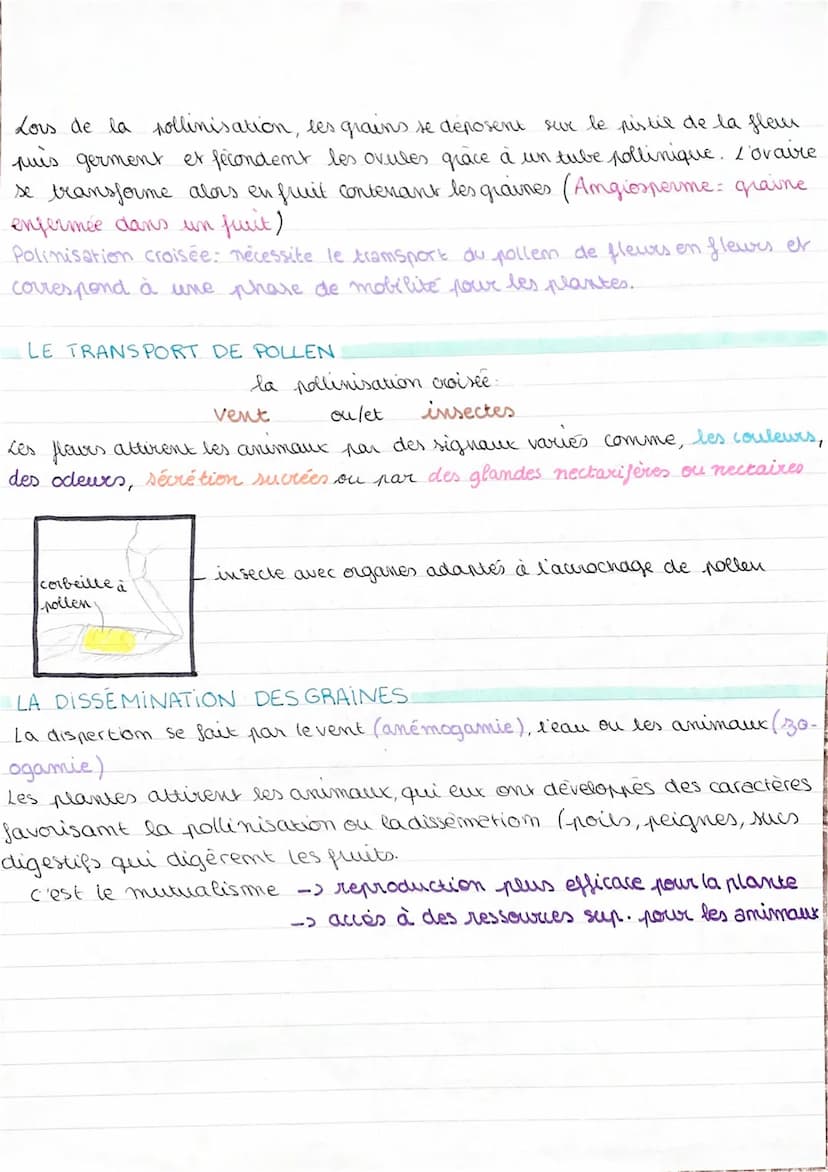 Lors de la pollinisation, les grains se déposent sur le pistil de la fleur
puis germent et fécondent les ovules grâce à un tube pollinique. L'ovaire
se transforme alors en fruit contenant les graines (Angiosperme = graine
enfermée dans un fuit)
Polinisation croisée: nécessite le transport du pollem de fleurs en fleurs et
correspond à une phase de mobilité pour les plantes.
LE TRANSPORT DE POLLEN
la pollinisation croisée:
vent ou/et insectes
Les fleurs attirent les animaux par des signaux variés comme, les couleurs,
des odeurs, sécrétion sucrées ou par des glandes nectarifères ou nectaires
corbeille à
pollen
insecte avec organes adaptés à l'accrochage de pollen
LA DISSÉMINATION DES GRAINES
La dispertion se fait par le vent (anémogamie), l'eau ou les animaux (zo-
ogamie)
Les plantes attirent les animaux, qui eux ont développés des caractères
favorisant la pollinisation ou la dissémetiom (poils, peignes, sucs
digestifs qui digèrent les fruits.
c'est le mutualisme -> reproduction plus efficace pour la plante
-> accés à des ressources sup. pour les animaux